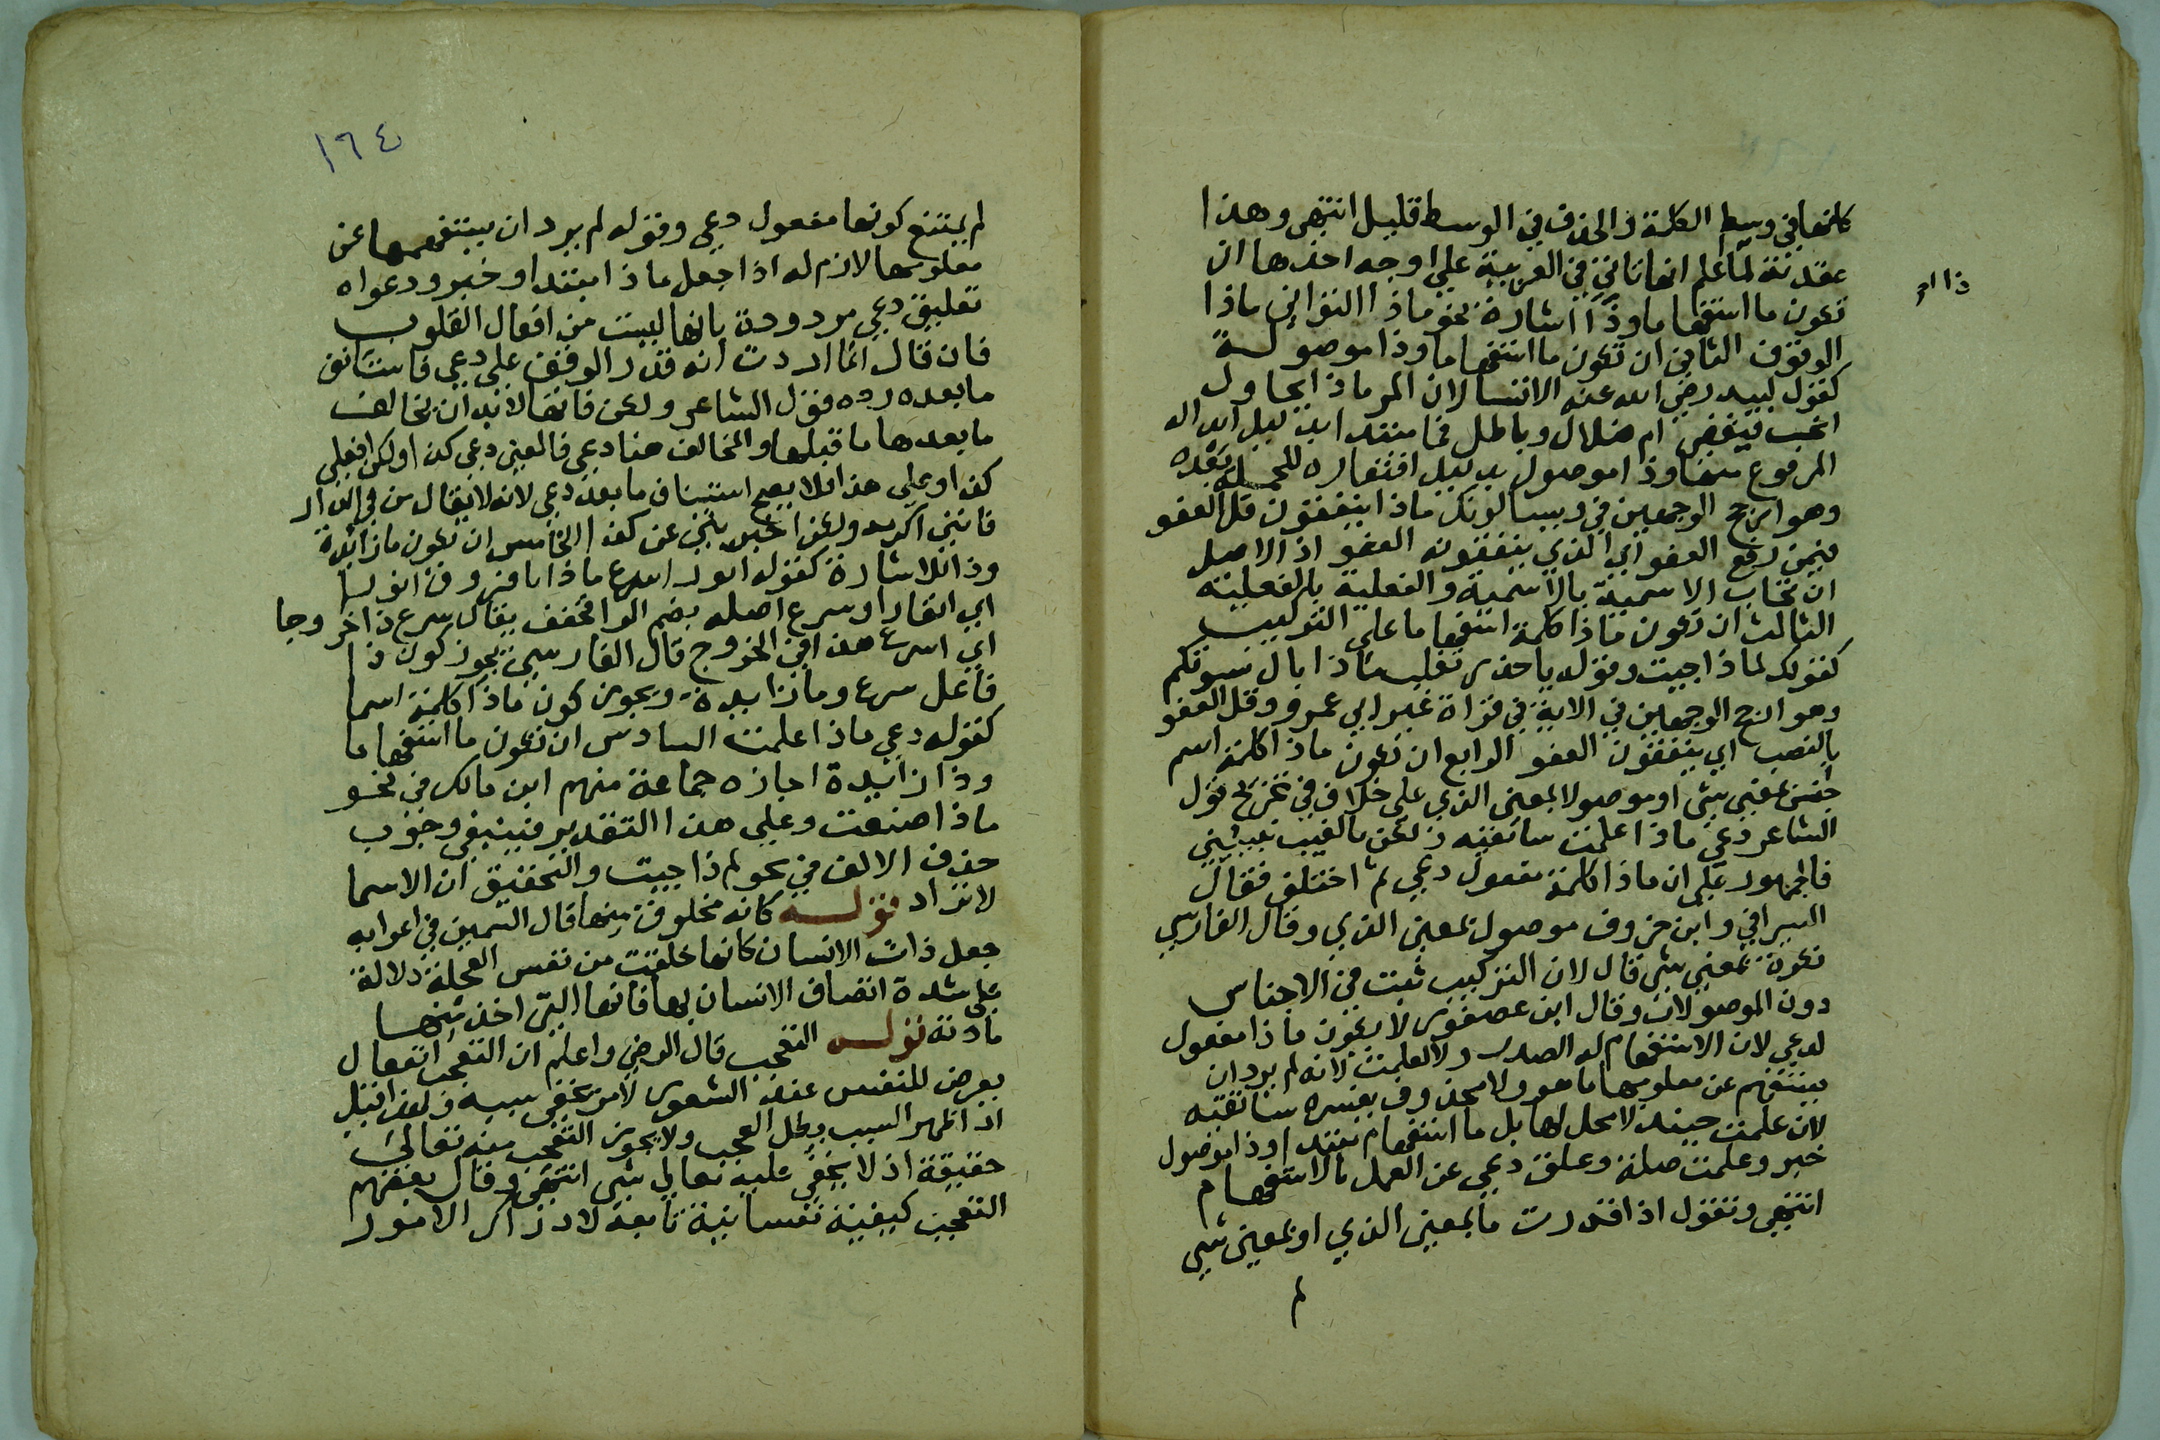 كانها في وسط الكلمة والحذف في الوسط قليل انتهى وهذا
عقد نته لما علم انها تاتي في العربية على اوجه احدها ان
تكون ما استفهاما وذا اشارة نحو ماذا التواني ماذا
الوقوف الثاني ان تكون ما استفهاما وذا موصولة
كقول لبيد رضي الله عنه الا تسالان المر ماذا يحاول
انحب فيقضى ام ضلال وباطل فما مبتدا بدليل ابداله
المرفوع منها وذا موصول بدليل افتقاره للجملة بعده
وهو ارجح الوجهين في ويسالونك ماذا ينفقون قل العفو
فيمن رفع العفو اي الذي ينفقونه العفو اذ الاصل
ان تجاب الاسمية بالاسمية والفعلية بالفعلية
الثالث ان تكون ماذا كلمة استفهاما على التركيب
كقولك لماذا جيت وقوله يا خزر تغلب ماذا بال نسوتكم
وهو ارجح الوجهين في الاية في قراة غير ابي عمرو وقل العفو
بالنصب اي ينفقون العفو الرابع ان تكون ماذا كلمة اسم
جنس بمعنى شي او موصولا بمعنى الذي على خلاف في تخريج قول
الشاعر دعي ماذا علمت ساتقيه ولكن بالغيب نبيني
فالجمهور على ان ماذا كلمة مفعول دعي ثم اختلف فقال
السيرافي وابن خروف موصول بمعنى الذي وقال الفارسي
نكرة بمعنى شي قال لان التركيب ثبت في الاجناس
دون الموصولات وقال ابن عصفور لا يكون ماذا مفعول
لدعي لان الاستفهام له الصدر ولا لعلمت لانه لم يرد ان
يستفهم عن معلومها ما هو ولا محذوف يفسره ساتقيه
لان علمت حينيد لا محل لها بل ما استفهام مبتدا وذا موصول
خبر وعلمت صلة وعلق دعي عن العمل بالاستفهام
انتهى ونقول اذا قدرت ما بمعنى الذي او بمعنى شي
لم
١٦٤
لم يمتنع كونها مفعول دعي وقوله لم يرد ان يستفهمها عن
معلومها لازم له اذا جعل ماذا مبتدا وخبر ودعواه
تعليق دعي مردودة بانها ليست من افعال القلوب
فان قال انما اردت انه قدر الوقف على دعي فاستانف
ما بعده رده قول الشاعر ولكن فانها لا بد ان يخالف
ما بعدها ما قبلها والمخالف هنا دعي فالمعنى دعي كذا ولكن افعلي
كذا وعلى هذا فلا يصح استيناف ما بعد دعي لانه لا يقال من في الدار
فانني اكرمه ولكن اخبرني عن كذا الخامس ان تكون ما زائدة
وذا للاشارة كقوله انورا سرع ماذا يا فروق انورا
اي انفارا وسرع اصله بضم الرا فخفف يقال سرع ذا خروجا
اي اسرع هذا في الخروج قال الفارسي يجوز كون ذا
فاعل سرع وما زايدة ويجوز كون ماذا كلمة اسما
كقوله دعي ماذا علمت السادس ان تكون ما استفهاما
وذا زائدة اجازه جماعة منهم ابن مالك في نحو
ماذا صنعت وعلى هذا التقدير فينبغي وجوب
حذف الالف في نحو لم ذا جيت والتحقيق ان الاسما
لا تزاد قوله كانه مخلوق منها قال السمين في اعرابه
جعل ذات الانسان كانها خلقت من نفس العجلة دلالة
على شدة اتصاف الانسان بها فانها التي اخذ منها
مادته قوله التعجب قال الرضي واعلم ان التعجب انفعال
يعرض للنفس عند الشعور لامر يخفى سببه ولهذا قيل
اذا ظهر السبب بطل العجب ولا يجوز التعجب منه تعالى
حقيقة اذ لا يخفى عليه تعالى شي انتهى وقال بعضهم
التعجب كيفية نفسانية تابعة لادراك الامور